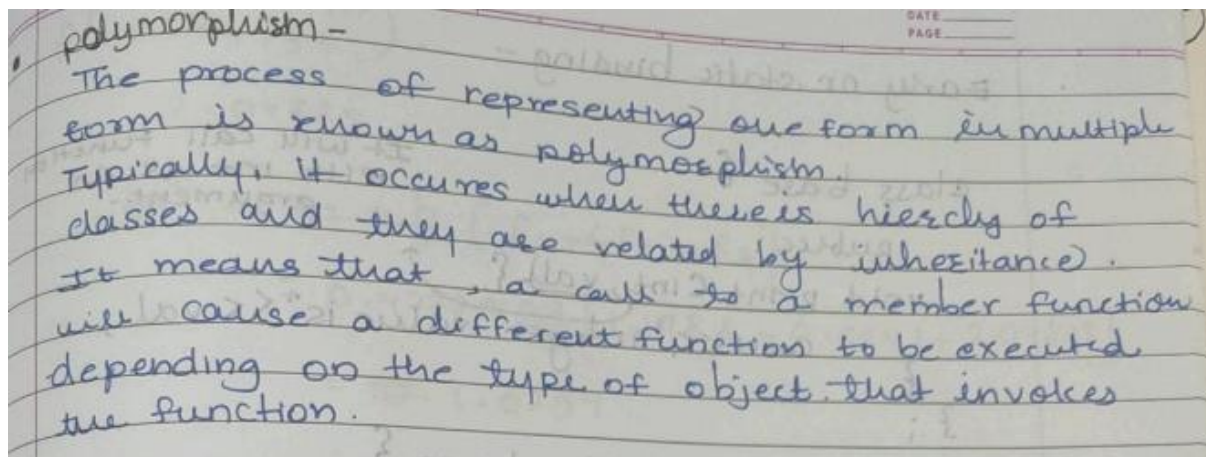 DATE
PAGE
• polymorphism -
The process of representing one form in multiple
form is known as polymorphism.
Typically, it occures when there is hierchy of
classes and they are related by inheritance.
It means that, a call to a member function
will cause a different function to be executed
depending on the type of object that invokes
the function.